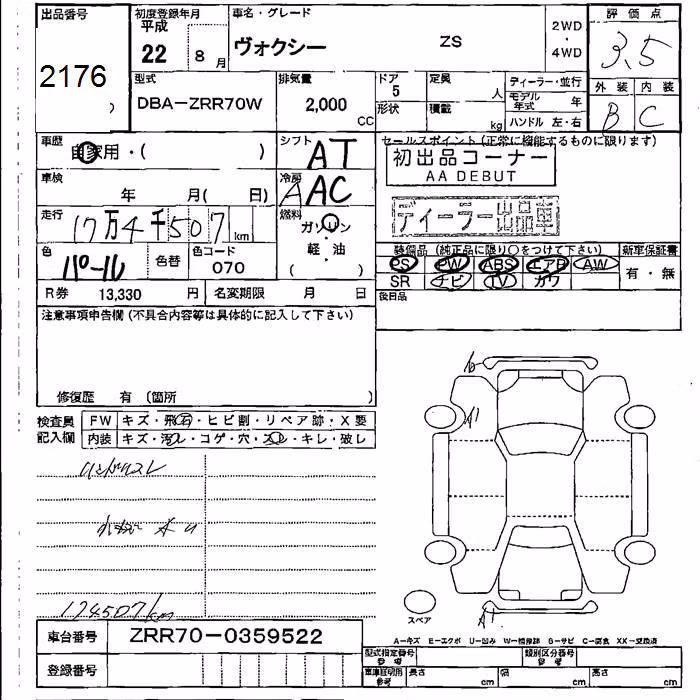 出品番号
2176
)
初度登録年月
平成
22 8月
車名・グレード
ヴォクシー ZS
2WD
・
4WD
評価点
3.5
外装 内装
B C
型式
DBA-ZRR70W
排気量
2,000
CC
ドア
5
形状
定員
人
積載
kg
ディーラー・並行
モデル年式 年
ハンドル 左・右
車歴
自家用・( )
シフト
AT
セールスポイント(正常に機能するものに限ります)
初出品コーナー
AA DEBUT
ディーラー出品車
車検
年 月( 日)
冷房
AAC
走行
17万4千507km
燃料
ガソリン
・
軽・油
( )
色
パール
色替
色コード
070
装備品(純正品に限り○をつけて下さい)
PS PW ABS エアB AW
SR ナビ TV カワ
新車保証書
有・無
R券 13,330 円
名変期限 月 日
後日品
注意事項申告欄(不具合内容等は具体的に記入して下さい)
修復歴 有 (箇所 )
検査員
記入欄
FW キズ・飛石・ヒビ割・リペア跡・X要
内装 キズ・汚レ・コゲ・穴・スレ・キレ・破レ
A1
174507km
スペア
A1
車台番号 ZRR70-0359522
登録番号
A-キズ E-エクボ U-凹み W-補修跡 B-サビ C-腐食 XX-交換済
型式指定番号
参考
類別区分番号
参考
車庫証明用
参考
長さ cm
幅 cm
高さ cm